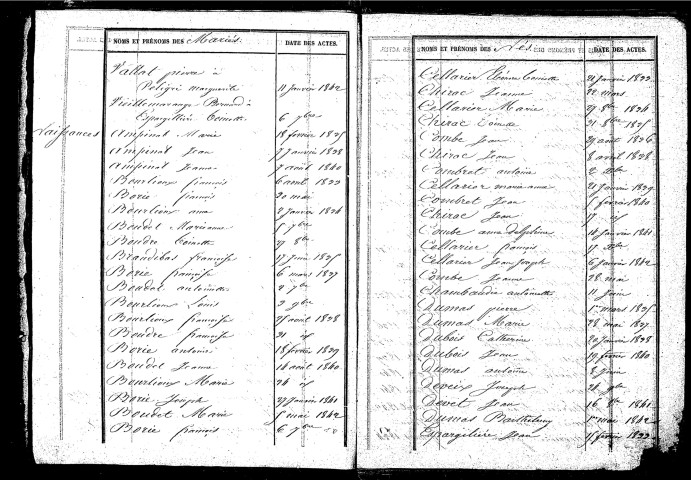 NOMS ET PRÉNOMS DES Mariés.
DATE DES ACTES.
Vallat pierre à
Poligri marguerite 11 janvier 1842
Vieillemarange Bernard à
Espargillière Toinette 6 9bre
Naissances Ampinat Marie 18 février 1825
Ampinat Jean 7 janvier 1838
Ampinat Jeanne 7 août 1840
Bourlioux françois 6 avril 1833
Borie françois 20 mai
Bourlioux anne 2 janvier 1834
Boudot Marianne 5 7bre
Boudre Toinette 27 8bre
Brandibas françoise 17 juin 1835
Borie françoise 6 mars 1837
Boudot antoinette 2 7bre
Bourlioux Louis 2 9bre
Bourlioux françoise 25 avril 1838
Boudre françoise 21
Borie antoine 18 février 1839
Boudot Jeanne 14 août 1840
Bourlioux Marie 24
Borie Joseph 27 janvier 1841
Boudot Marie 5 mai 1842
Borie françois 6 9bre
NOMS ET PRÉNOMS DES Nés.
DATE DES ACTES.
Cellarier Toinette 21 janvier 1833
Chirac Jeanne 22 mars
Cellarier Marie 29 8bre 1834
Chirac 21 8bre 1835
Combe Jean 29 août 1836
Chirac Jean 8 avril 1838
Combret antoine 2 Xbre
Cellarier marie anne 21 janvier 1839
Combret Jean 5 février 1840
Chirac Jean 17 id
Combe anne delphine 14 janvier 1841
Cellarier françois 17 Xbre
Cellarier Jean Joseph 6 janvier 1842
Combe Jeanne 28 mai
Chambaudie antoinette 11 juin
Dumas pierre 1er mars 1835
Dumas Marie 28 mai 1837
Dubois Catherine 20 janvier 1838
Dubois Jean 19 février 1840
Dumas antoine 8 juin
Deveix Joseph 24 9bre
Devet Jean 16 8bre 1841
Dumas Barthelemy 1er mai 1842
Espargilière Jean 15 février 1833